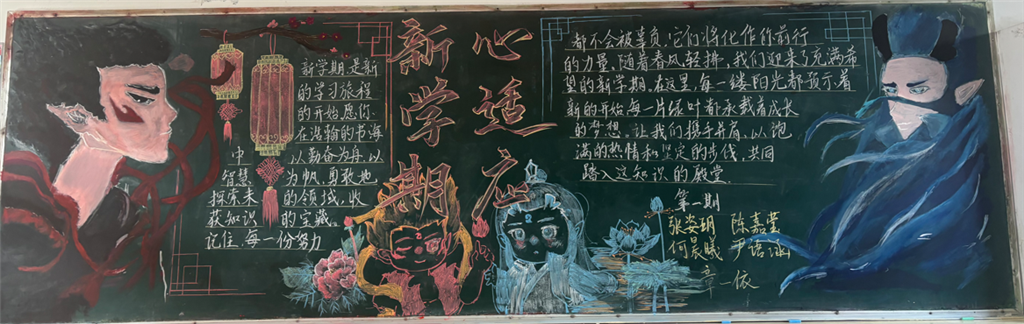 新学期
心适应
新学期是新
的学习旅程
的开始愿你
在浩翰的书海
中 以勤奋为舟,以
智慧 为帆,勇敢地
探索未 的领域,收
获知识 的宝藏。
记住,每一份努力
都不会被辜负,它们将化作你前行
的力量,随着春风轻拂,我们迎来了充满希
望的新学期,在这里,每一缕阳光都预示着
新的开始,每一片绿叶都承载着成长
的梦想。让我们携手并肩,以饱
满的热情和坚定的步伐,共同
踏入这知识的殿堂。
第一期
张姿玥 陈嘉
何晨曦 尹浩涵
章一依